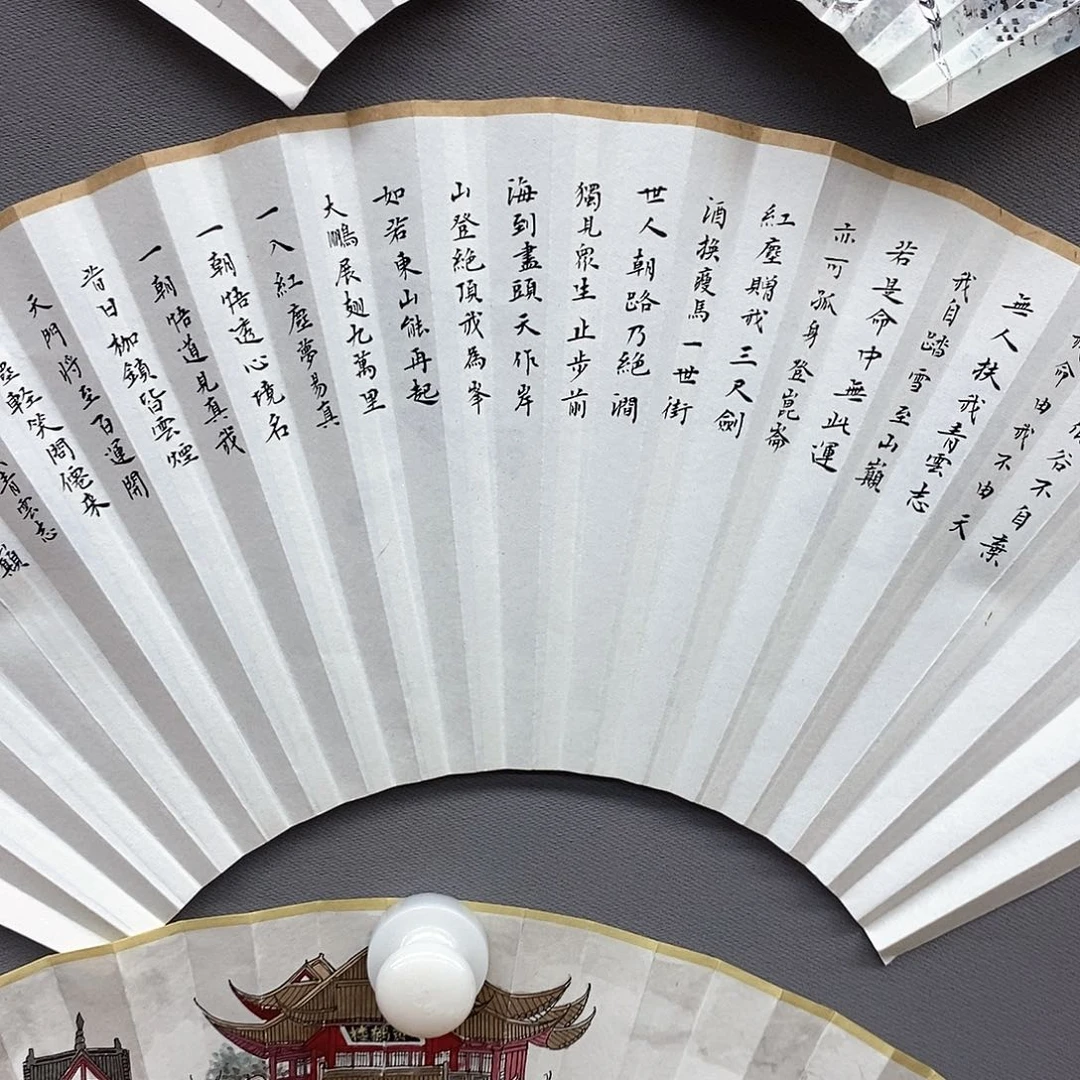 谷不自棄
命由我不由天
無人扶我青雲志
我自踏雪至山巔
若是命中無此運
亦可孤身登崑崙
紅塵贈我三尺劍
酒換瘦馬一世街
世人朝路乃絕澗
獨見眾生止步前
海到盡頭天作岸
山登絕頂我為峯
如若東山能再起
大鵬展翅九萬里
一入紅塵夢易真
一朝悟透心境名
一朝悟道見真我
昔日枷鎖皆雲煙
天門將至百運開
輕笑問僊來
青雲志
巔